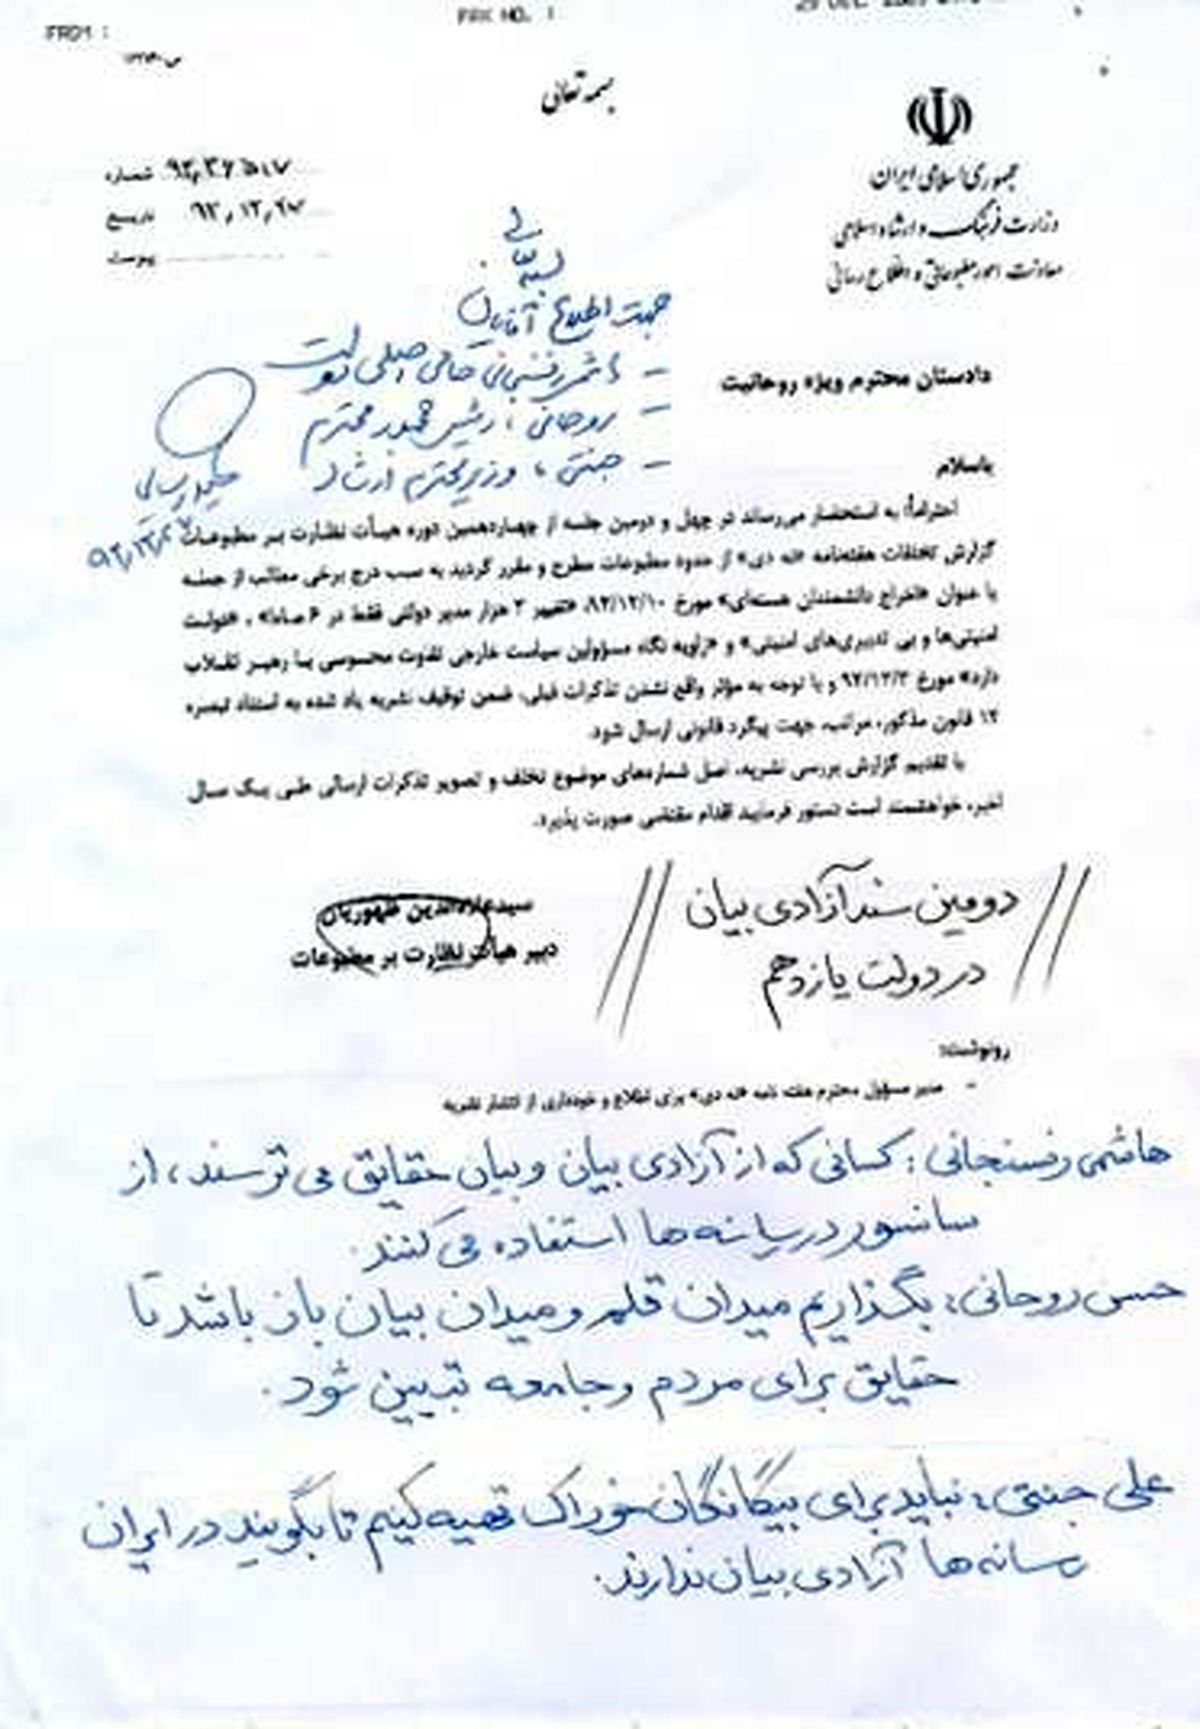 FROM :
FAX NO. :
بسمه تعالی
جمهوری اسلامی ایران
وزارت فرهنگ و ارشاد اسلامی
معاونت امور مطبوعاتی و اطلاع رسانی
شماره
تاریخ ۹۲/۱۲/۲۷
پیوست
بسمه تعالی
جهت اطلاع آقایان
– هاشمی رفسنجانی حامی اصلی دولت
– روحانی، رئیس جمهور محترم
– جنتی، وزیر محترم ارشاد
حمید رسایی
دادستان محترم ویژه روحانیت
باسلام
احتراماً؛ به استحضار می‌رساند در چهل و دومین جلسه از چهاردهمین دوره هیأت نظارت بر مطبوعات
گزارش تخلفات هفته‌نامه «نه دی» از حدود مطبوعات مطرح و مقرر گردید به سبب درج برخی مطالب از جمله
با عنوان «اخراج دانشمندان هسته‌ای» مورخ ۹۲/۱۲/۱۰، «تغییر ۳ هزار مدیر دولتی فقط در ۶ ماه»، «دولت
امنیتی‌ها و بی تدبیری‌های امنیتی» و «زاویه نگاه مسؤولین سیاست خارجی تفاوت محسوسی با رهبر انقلاب
دارد» مورخ ۹۲/۱۲/۳ و با توجه به مؤثر واقع نشدن تذکرات قبلی، ضمن توقیف نشریه یاد شده به استناد تبصره
۱۲ قانون مذکور، مراتب، جهت پیگرد قانونی ارسال شود.
با تقدیم گزارش بررسی نشریه، اصل شماره‌های موضوع تخلف و تصویر تذکرات ارسالی طی یک سال
اخیر، خواهشمند است دستور فرمایید اقدام مقتضی صورت پذیرد.
سیدعلاءالدین ظهوریان
دبیر هیأت نظارت بر مطبوعات
دومین سند آزادی بیان
در دولت یازدهم
رونوشت:
- مدیر مسؤول محترم هفته نامه «نه دی» برای اطلاع و خودداری از انتشار نشریه
هاشمی رفسنجانی: کسانی که از آزادی بیان و بیان حقایق می ترسند، از
سانسور در رسانه ها استفاده می کنند.
حسن روحانی: بگذاریم میدان قلم و میدان بیان باز باشد تا
حقایق برای مردم و جامعه تبیین شود.
علی جنتی: نباید برای بیگانگان خوراک تهیه کنیم تا بگویند در ایران
رسانه ها آزادی بیان ندارند.